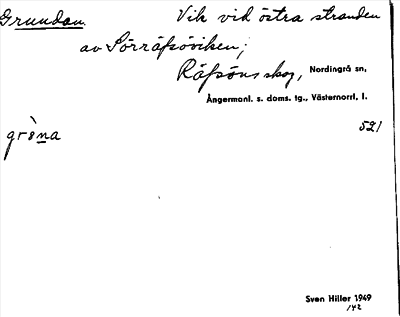 Grundan. Vik vid östra stranden
av Sörräfsöviken;
Räfsöns skog, Nordingrå sn,
Ångermanl. s. doms. tg., Västernorrl. l.
521
Sven Hiller 1949
142